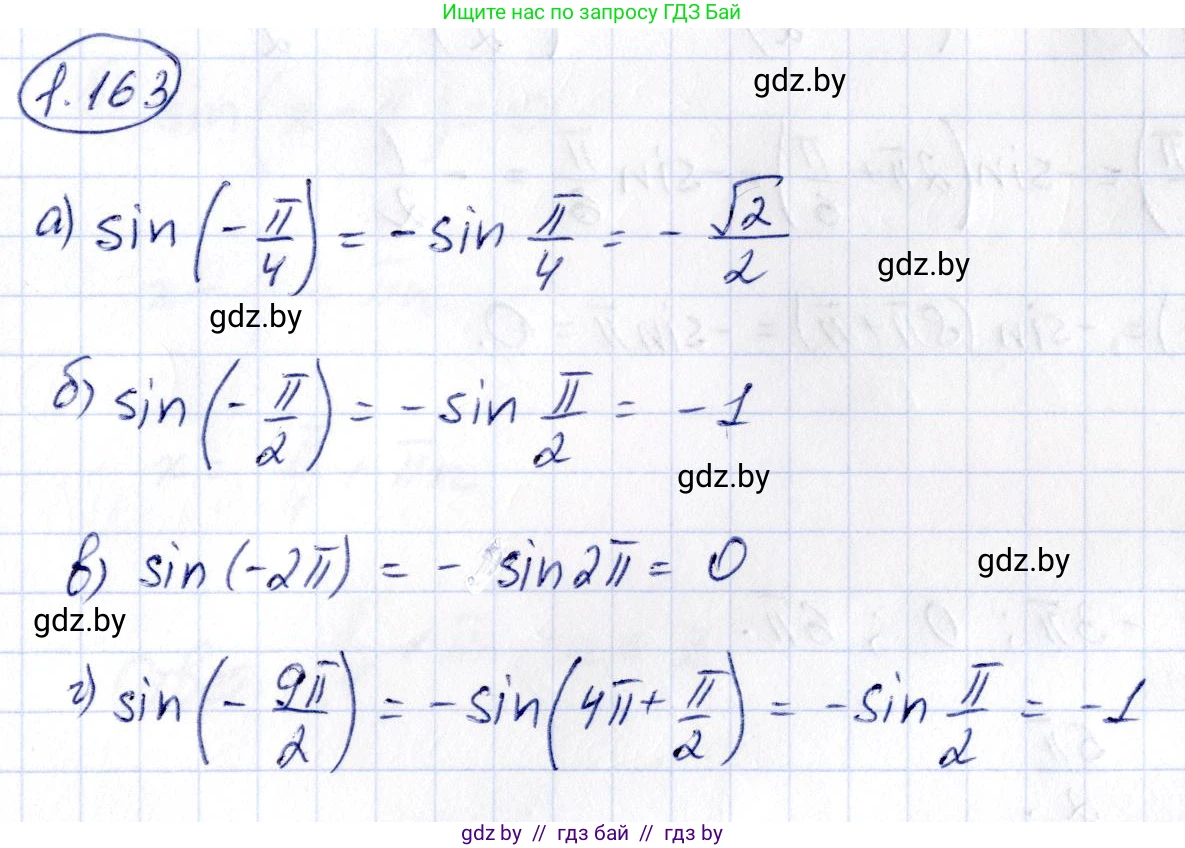 Ищите нас по запросу ГДЗ Бай
1.163
gdz.by
а) sin(-π/4) = -sin π/4 = -√2/2
gdz.by
gdz.by
б) sin(-π/2) = -sin π/2 = -1
gdz.by
в) sin(-2π) = - sin2π = 0
gdz.by
gdz.by
г) sin(-9π/2) = -sin(4π+π/2) = -sin π/2 = -1
gdz.by // гдз бай // гдз by